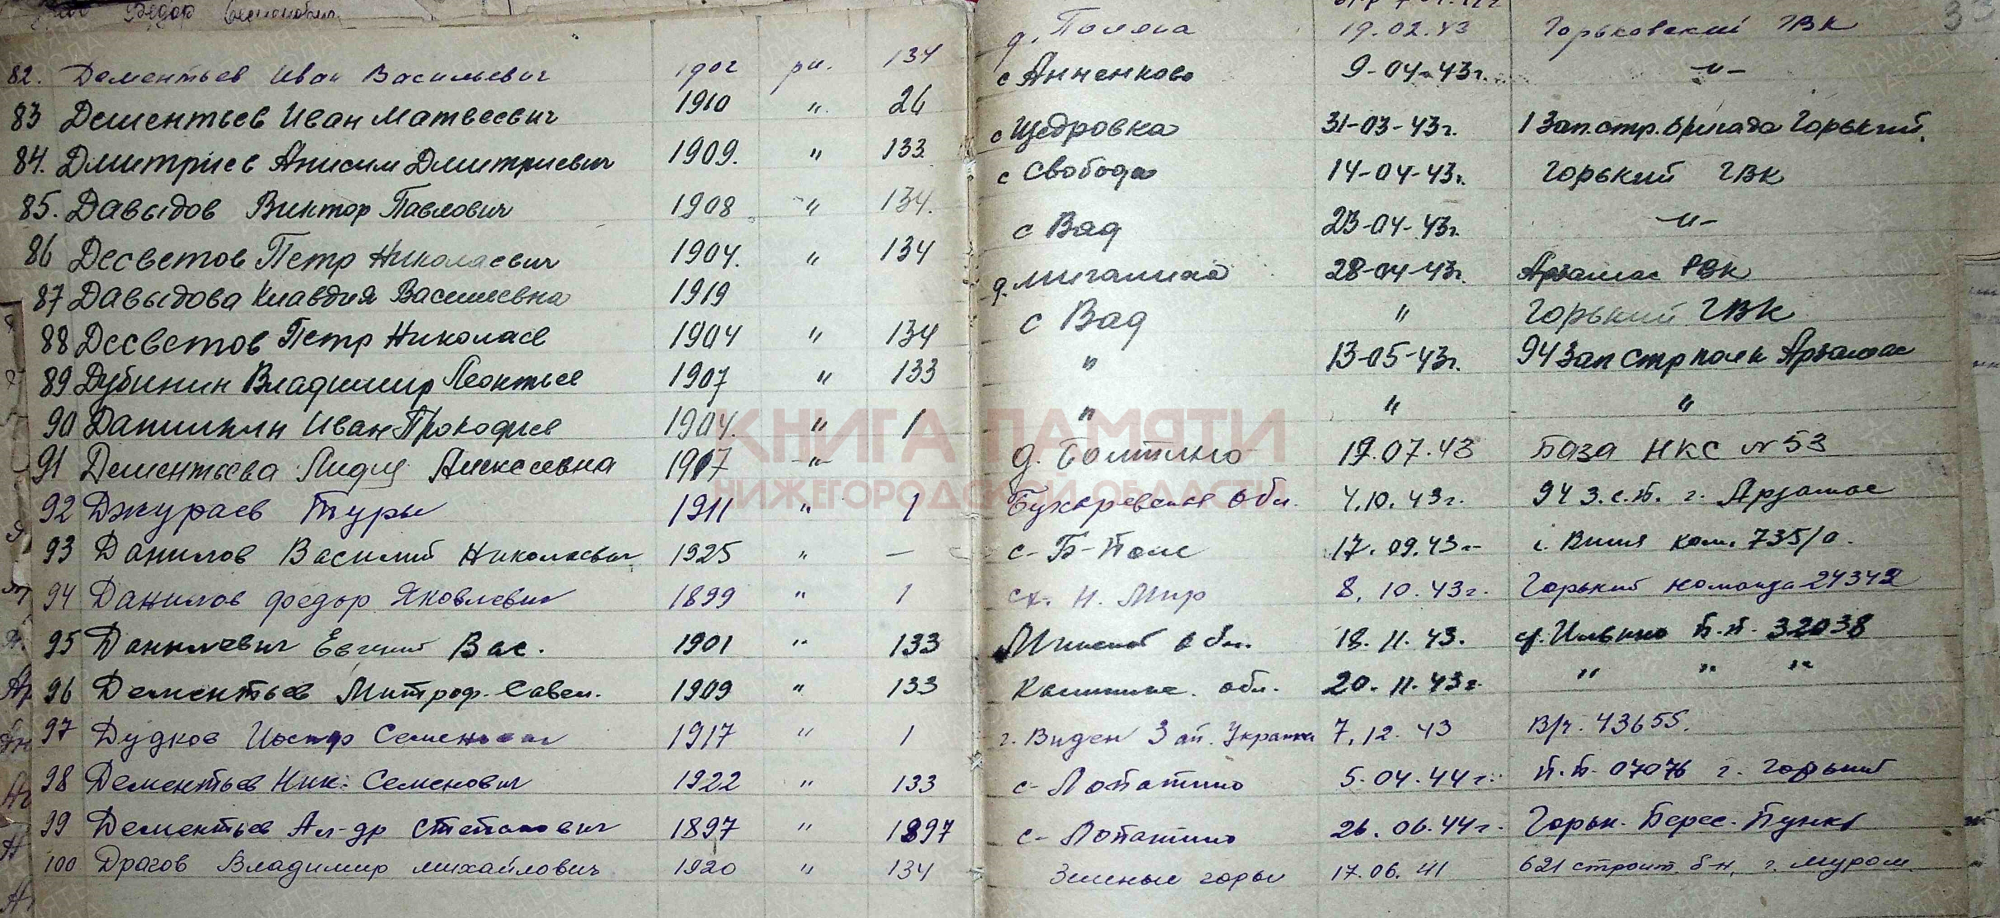 Федор Семенович
д. Поляна 19.02.43 Горьковский ГВК 33
82. Дементьев Иван Васильевич 1902 ря. 134 с Анненково 9-04-43г. -"-
83 Дементьев Иван Матвеевич 1910 " 26 с Щедровка 31-03-43г. 1 Зап.стр.бригада Горький.
84. Дмитриев Анисим Дмитриевич 1909. " 133 с Свобода 14-04-43г. Горький ГВК
85. Давыдов Виктор Павлович 1908 " 134. с Вад 23-04-43г. -"-
86 Десветов Петр Николаевич 1904. " 134 д. 28-04-43г. Арзамас РВК
87 Давыдова Клавдия Васильевна 1919 с Вад " Горький ГВК
88 Десветов Петр Николаев 1904 " 134 " 13-05-43г. 94 Зап Стр полк Арзамас
89 Дубинин Владимир Леонтьев 1907 " 133 " " "
90 Данилкин Иван Прокофьев 1904. " 1 д. Болтино 19.07.43 База НКС №53
91 Дементьева Лидия Алексеевна 1917 -"- Бухаревская обл. 4.10.43г. 94 З.с.п. г. Арзамас
92 Джураев Туры 1911 " 1 с-Б-Поле 17.09.43- ком. 735/а.
93 Данилов Василий Николаевич 1925 " — Н. Мир 8.10.43г. Горький команда 24342
94 Данилов Федор Яковлевич 1899 " 1 Минской обл. 18.11.43. ст. Ильино П.П. 32038
95 Данилевич Евгений Вас. 1901 " 133 Калинин. обл. 20.11.43г " " "
96 Дементьев Митроф. Савел. 1909 " 133 г. Виден Зап. Украина 7.12.43 В/ч. 43655.
97 Дудков Иосиф Семенович 1917 " 1 с-Лопатино 5-04-44г. П.П. 07076 г. Горький
98 Дементьев Ник. Семенович 1922 " 133 с-Лопатино 26.06.44г. Горьк. Перес. Пункт
99 Дементьев Ал-др Степанович 1897 " 1897 Зеленые горы 17.06.41 621 строит. б-н, г. Муром.
100 Драгов Владимир Михайлович 1920 " 134
КНИГА ПАМЯТИ
НИЖЕГОРОДСКОЙ ОБЛАСТИ